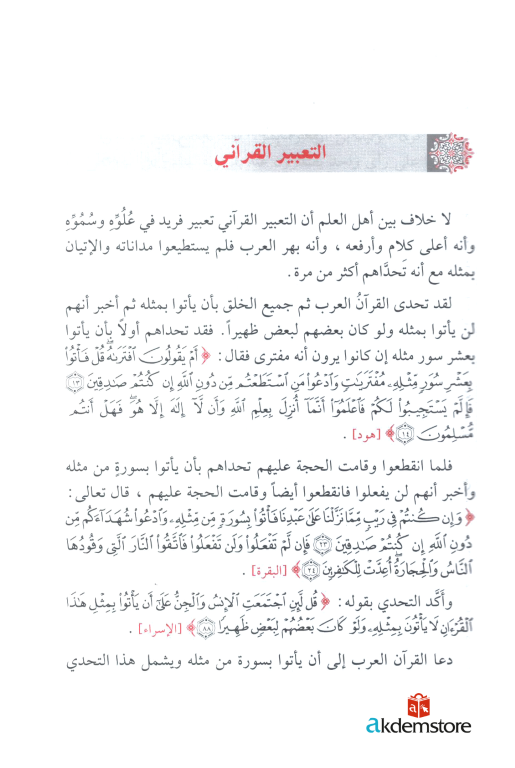 التعبير القرآني
لا خلاف بين أهل العلم أن التعبير القرآني تعبير فريد في عُلُوِّهِ وسُمُوِّهِ
وأنه أعلى كلام وأرفعه ، وأنه بهر العرب فلم يستطيعوا مداناته والإتيان
بمثله مع أنه تَحدَّاهم أكثر من مرة .
لقد تحدى القرآنُ العرب ثم جميع الخلق بأن يأتوا بمثله ثم أخبر أنهم
لن يأتوا بمثله ولو كان بعضهم لبعض ظهيراً . فقد تحداهم أولاً بأن يأتوا
بعشر سور مثله إن كانوا يرون أنه مفترى فقال : ﴿ أَمْ يَقُولُونَ ٱفْتَرَىٰهُ قُلْ فَأْتُوا۟
بِعَشْرِ سُوَرٍ مِّثْلِهِۦ مُفْتَرَيَـٰتٍ وَٱدْعُوا۟ مَنِ ٱسْتَطَعْتُم مِّن دُونِ ٱللَّهِ إِن كُنتُمْ صَـٰدِقِينَ ١٣
فَإِلَّمْ يَسْتَجِيبُوا۟ لَكُمْ فَٱعْلَمُوٓا۟ أَنَّمَآ أُنزِلَ بِعِلْمِ ٱللَّهِ وَأَن لَّآ إِلَـٰهَ إِلَّا هُوَ فَهَلْ أَنتُم
مُّسْلِمُونَ ١٤ ﴾ [هود] .
فلما انقطعوا وقامت الحجة عليهم تحداهم بأن يأتوا بسورةٍ من مثله
وأخبر أنهم لن يفعلوا فانقطعوا أيضاً وقامت الحجة عليهم ، قال تعالى :
﴿ وَإِن كُنتُمْ فِى رَيْبٍ مِّمَّا نَزَّلْنَا عَلَىٰ عَبْدِنَا فَأْتُوا۟ بِسُورَةٍ مِّن مِّثْلِهِۦ وَٱدْعُوا۟ شُهَدَآءَكُم مِّن
دُونِ ٱللَّهِ إِن كُنتُمْ صَـٰدِقِينَ ٢٣ فَإِن لَّمْ تَفْعَلُوا۟ وَلَن تَفْعَلُوا۟ فَٱتَّقُوا۟ ٱلنَّارَ ٱلَّتِى وَقُودُهَا
ٱلنَّاسُ وَٱلْحِجَارَةُ أُعِدَّتْ لِلْكَـٰفِرِينَ ٢٤ ﴾ [البقرة] .
وأكَّد التحدي بقوله : ﴿ قُل لَّئِنِ ٱجْتَمَعَتِ ٱلْإِنسُ وَٱلْجِنُّ عَلَىٰٓ أَن يَأْتُوا۟ بِمِثْلِ هَـٰذَا
ٱلْقُرْءَانِ لَا يَأْتُونَ بِمِثْلِهِۦ وَلَوْ كَانَ بَعْضُهُمْ لِبَعْضٍ ظَهِيرًا ٨٨ ﴾ [الإسراء] .
دعا القرآن العرب إلى أن يأتوا بسورة من مثله ويشمل هذا التحدي
akdemstore